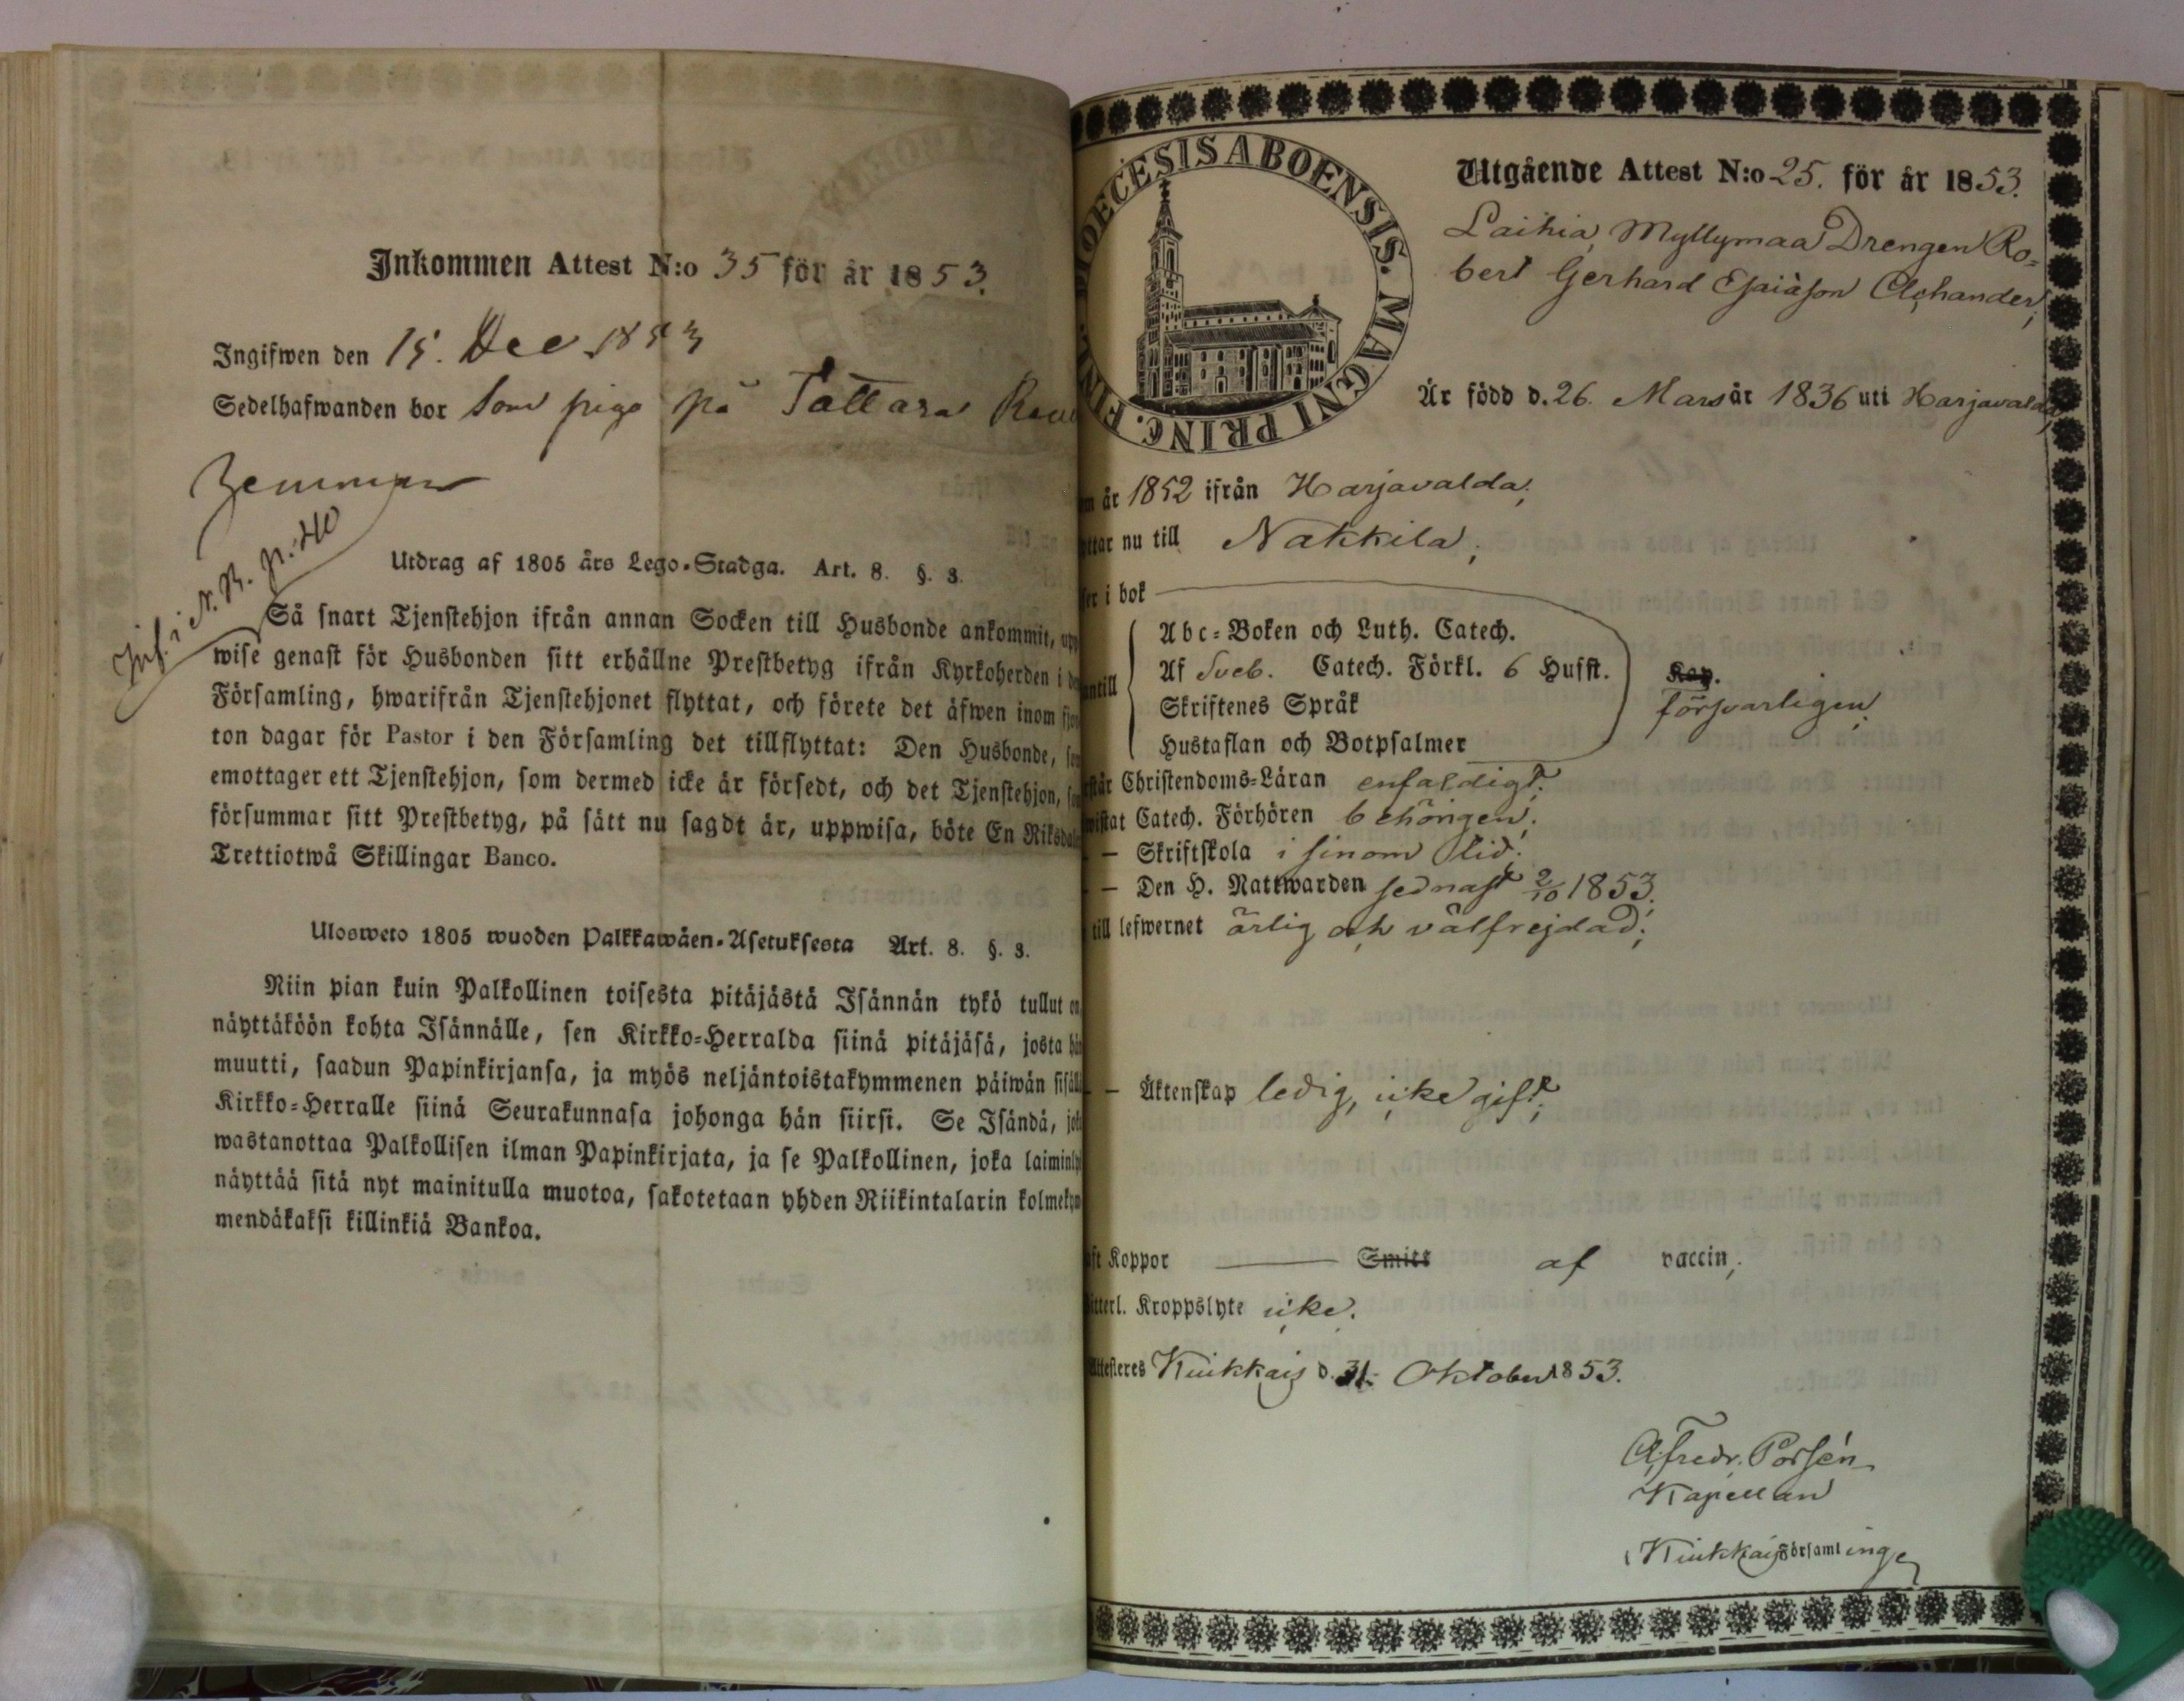 Inkommen Attest N:o 35 för år 1853.
Ingifwen den 15. Dec 1853
Sedelhafwanden bor som piga på Tattara
Inf. i N. B. p. 210
Utdrag af 1805 års Lego-Stadga. Art. 8. §. 3.
Så snart Tjenstehjon ifrån annan Socken till Husbonde ankommit, upp
wise genast för Husbonden sitt erhållne Prestbetyg ifrån Kyrkoherden i
Församling, hwarifrån Tjenstehjonet flyttat, och förete det äfwen inom fjor
ton dagar för Pastor i den Församling det tillflyttat: Den Husbonde, som
emottager ett Tjenstehjon, som dermed icke är försedt, och det Tjenstehjon, som
försummar sitt Prestbetyg, på sätt nu sagdt är, uppwisa, böte En Riksdaler
Trettiotwå Skillingar Banco.
Ulosweto 1805 wuoden Palkkawäen-Asetuksesta Art. 8. §. 3.
Niin pian kuin Palkollinen toisesta pitäjästä Isännän tykö tullut on
näyttäköön kohta Isännälle, sen Kirkko-Herralda siinä pitäjäsä, josta hän
muutti, saadun Papinkirjansa, ja myös neljäntoistakymmenen päiwän sisällä
Kirkko-Herralle siinä Seurakunnasa johonga hän siirsi. Se Isändä, joka
wastanottaa Palkollisen ilman Papinkirjata, ja se Palkollinen, joka laiminly
näyttää sitä nyt mainitulla muotoa, sakotetaan yhden Riikintalarin kolmekym
mendäkaksi killinkiä Bankoa.
DIOECESIS ABOENSIS. MAGNI PRINC. FINL.
Utgående Attest N:o 25. för år 1853.
Laihia, Myllymaa Drengen Ro=
bert Gerhard Esaiàson Clehander,
Är född d. 26. Mars år 1836 uti Harjavalda,
år 1852 ifrån Harjavalda;
ttar nu till Nakkila;
ser i bok
antill
Abc=Boken och Luth. Catech.
Af Sveb. Catech. Förkl. 6 Hufst.
Skriftenes Språk
Hustaflan och Botpsalmer
Kap.
försvarligen,
står Christendoms=Läran enfaldigt;
wistat Catech. Förhören behörigen;
— Skriftskola i sinom tid;
— Den H. Nattwarden sednast 2/10 1853;
till lefwernet ärlig och välfrejdad;
— Äktenskap ledig, icke gift;
ft Koppor — Smitt af vaccin,
itterl. Kroppslyte icke.
Attesteres Kiukkais d. 31. Oktober 1853.
A, Fredr. Porsén
Kapellan
i Kiukkais Församlinge